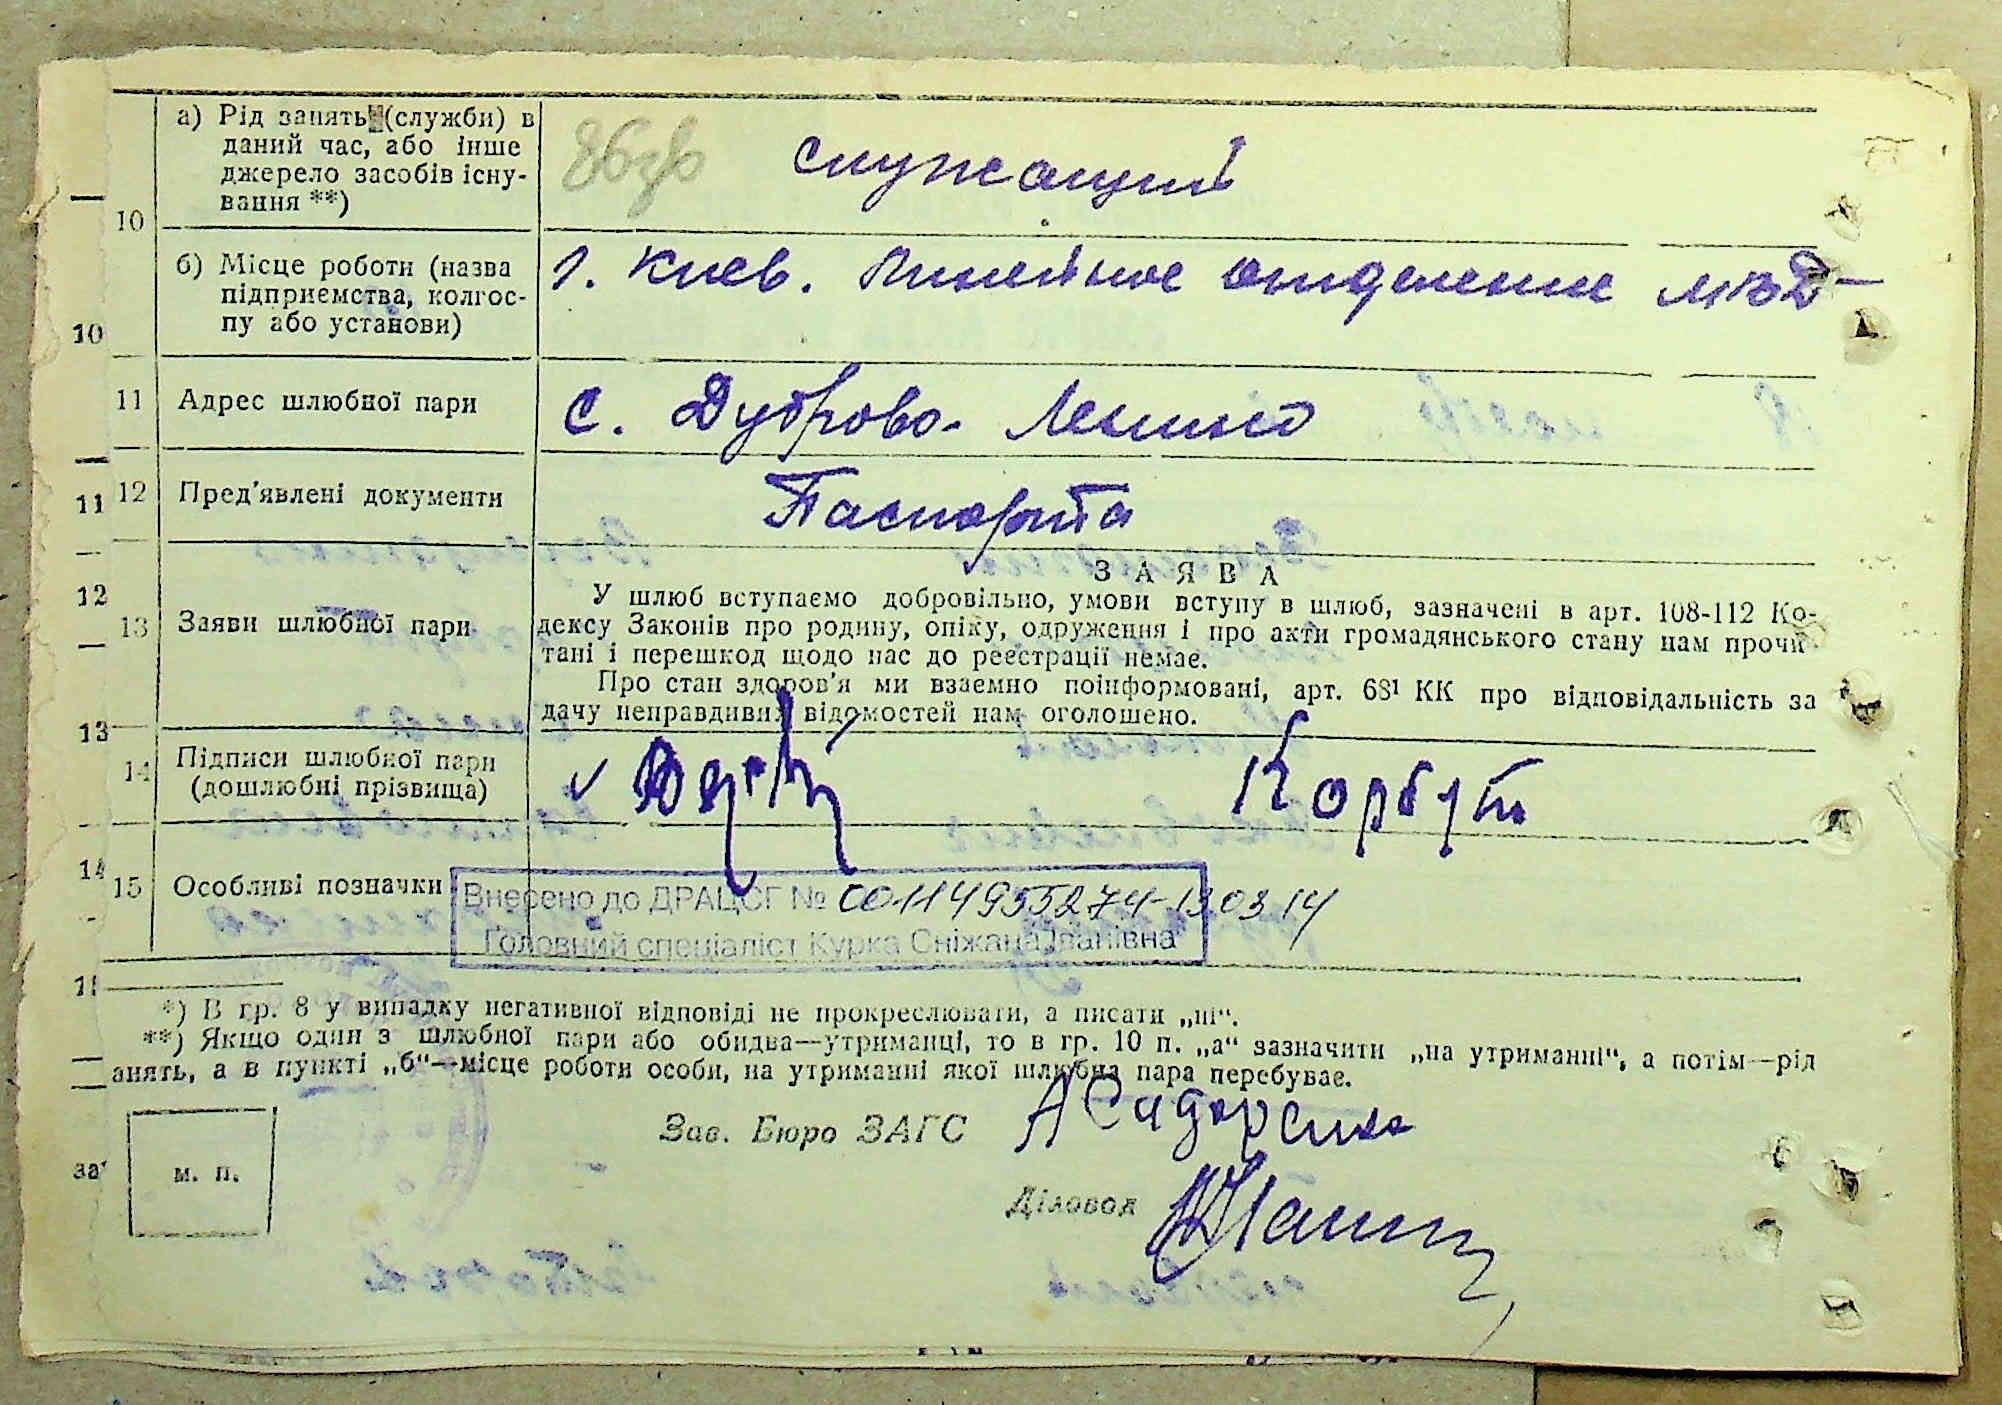 а) Рід занять (служби) в
даний час, або інше
джерело засобів існу-
вання **)
10
служащий
б) Місце роботи (назва
підприємства, колгос-
пу або установи)
10
г. Киев. Линейное отделение МВД
11
Адрес шлюбної пари
с. Дуброво-Ленино
11
12
Пред'явлені документи
Паспорта
12
13
Заяви шлюбної пари
ЗАЯВА
У шлюб вступаємо добровільно, умови вступу в шлюб, зазначені в арт. 108-112 Ко-
дексу Законів про родину, опіку, одруження і про акти громадянського стану нам прочи-
тані і перешкод щодо нас до реєстрації немає.
Про стан здоров'я ми взаємно поінформовані, арт. 68¹ КК про відповідальність за
дачу неправдивих відомостей нам оголошено.
13
14
Підписи шлюбної пари
(дошлюбні прізвища)
Корбут
14
15
Особливі позначки
Внесено до ДРАЦСГ № 00114955274-13 03 14
Головний спеціаліст Курка Сніжана Іванівна
*) В гр. 8 у випадку негативної відповіді не прокреслювати, а писати „ні“.
**) Якщо один з шлюбної пари або обидва—утриманці, то в гр. 10 п. „а“ зазначити „на утриманні“, а потім—рід
анять, а в пункті „б“—місце роботи особи, на утриманні якої шлюбна пара перебуває.
Зав. Бюро ЗАГС
А Сидоренко
за
м. п.
Діловод